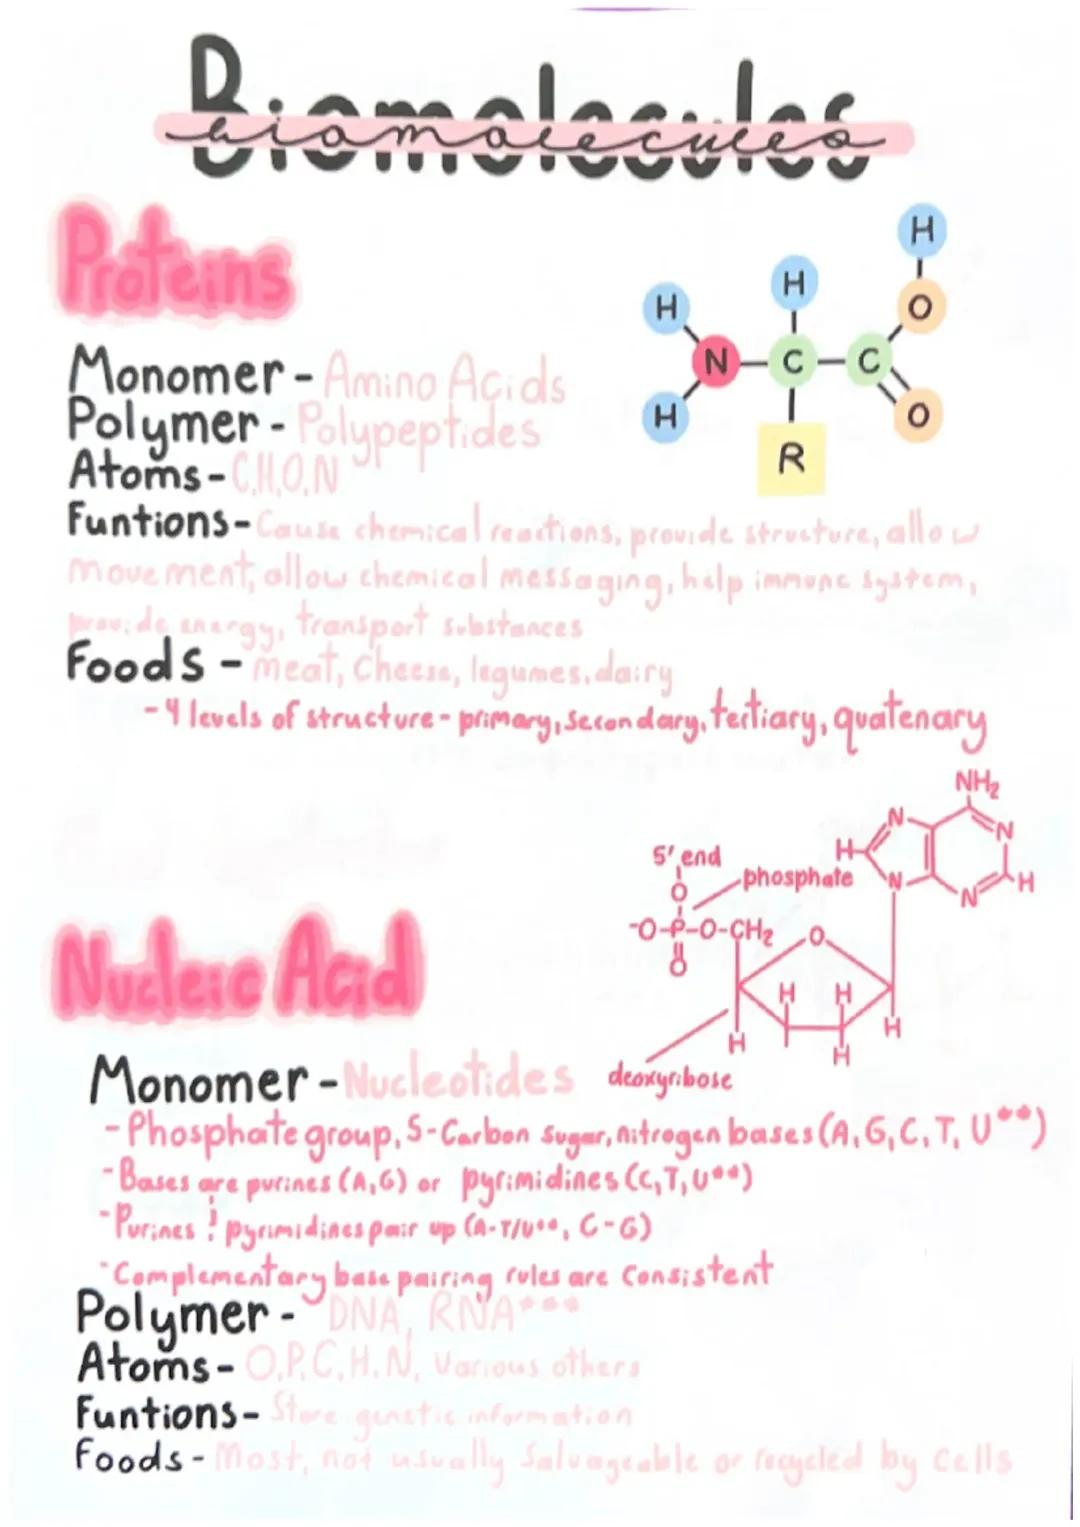 Biomolecules
biomolecules
Proteins
Monomer - Amino Acids
Polymer - Polypeptides
Atoms - C,H,O,N
Funtions - Cause chemical reactions, provide structure, allow
movement, allow chemical messaging, help immune system,
provide energy, transport substances
Foods - meat, Cheese, legumes, dairy
- 4 levels of structure - primary, Secondary, tertiary, quatenary
H
H
H
N C C O
H
R
O
NH₂
N
N
H
5' end
phosphate
N
N
H
O
-O-P-O-CH₂
O
O
H H
H
H
H
deoxyribose
Nucleic Acid
Monomer - Nucleotides
- Phosphate group, 5-Carbon sugar, nitrogen bases (A, G, C, T, U**)
- Bases are purines (A,G) or pyrimidines (C,T,U**)
- Purines & pyrimidines pair up (A-T/U**, C-G)
- Complementary base pairing rules are Consistent
Polymer - DNA, RNA***
Atoms - O,P,C,H,N, Various others
Funtions - Store genetic information
Foods - Most, not usually Salvageable or recycled by Cells